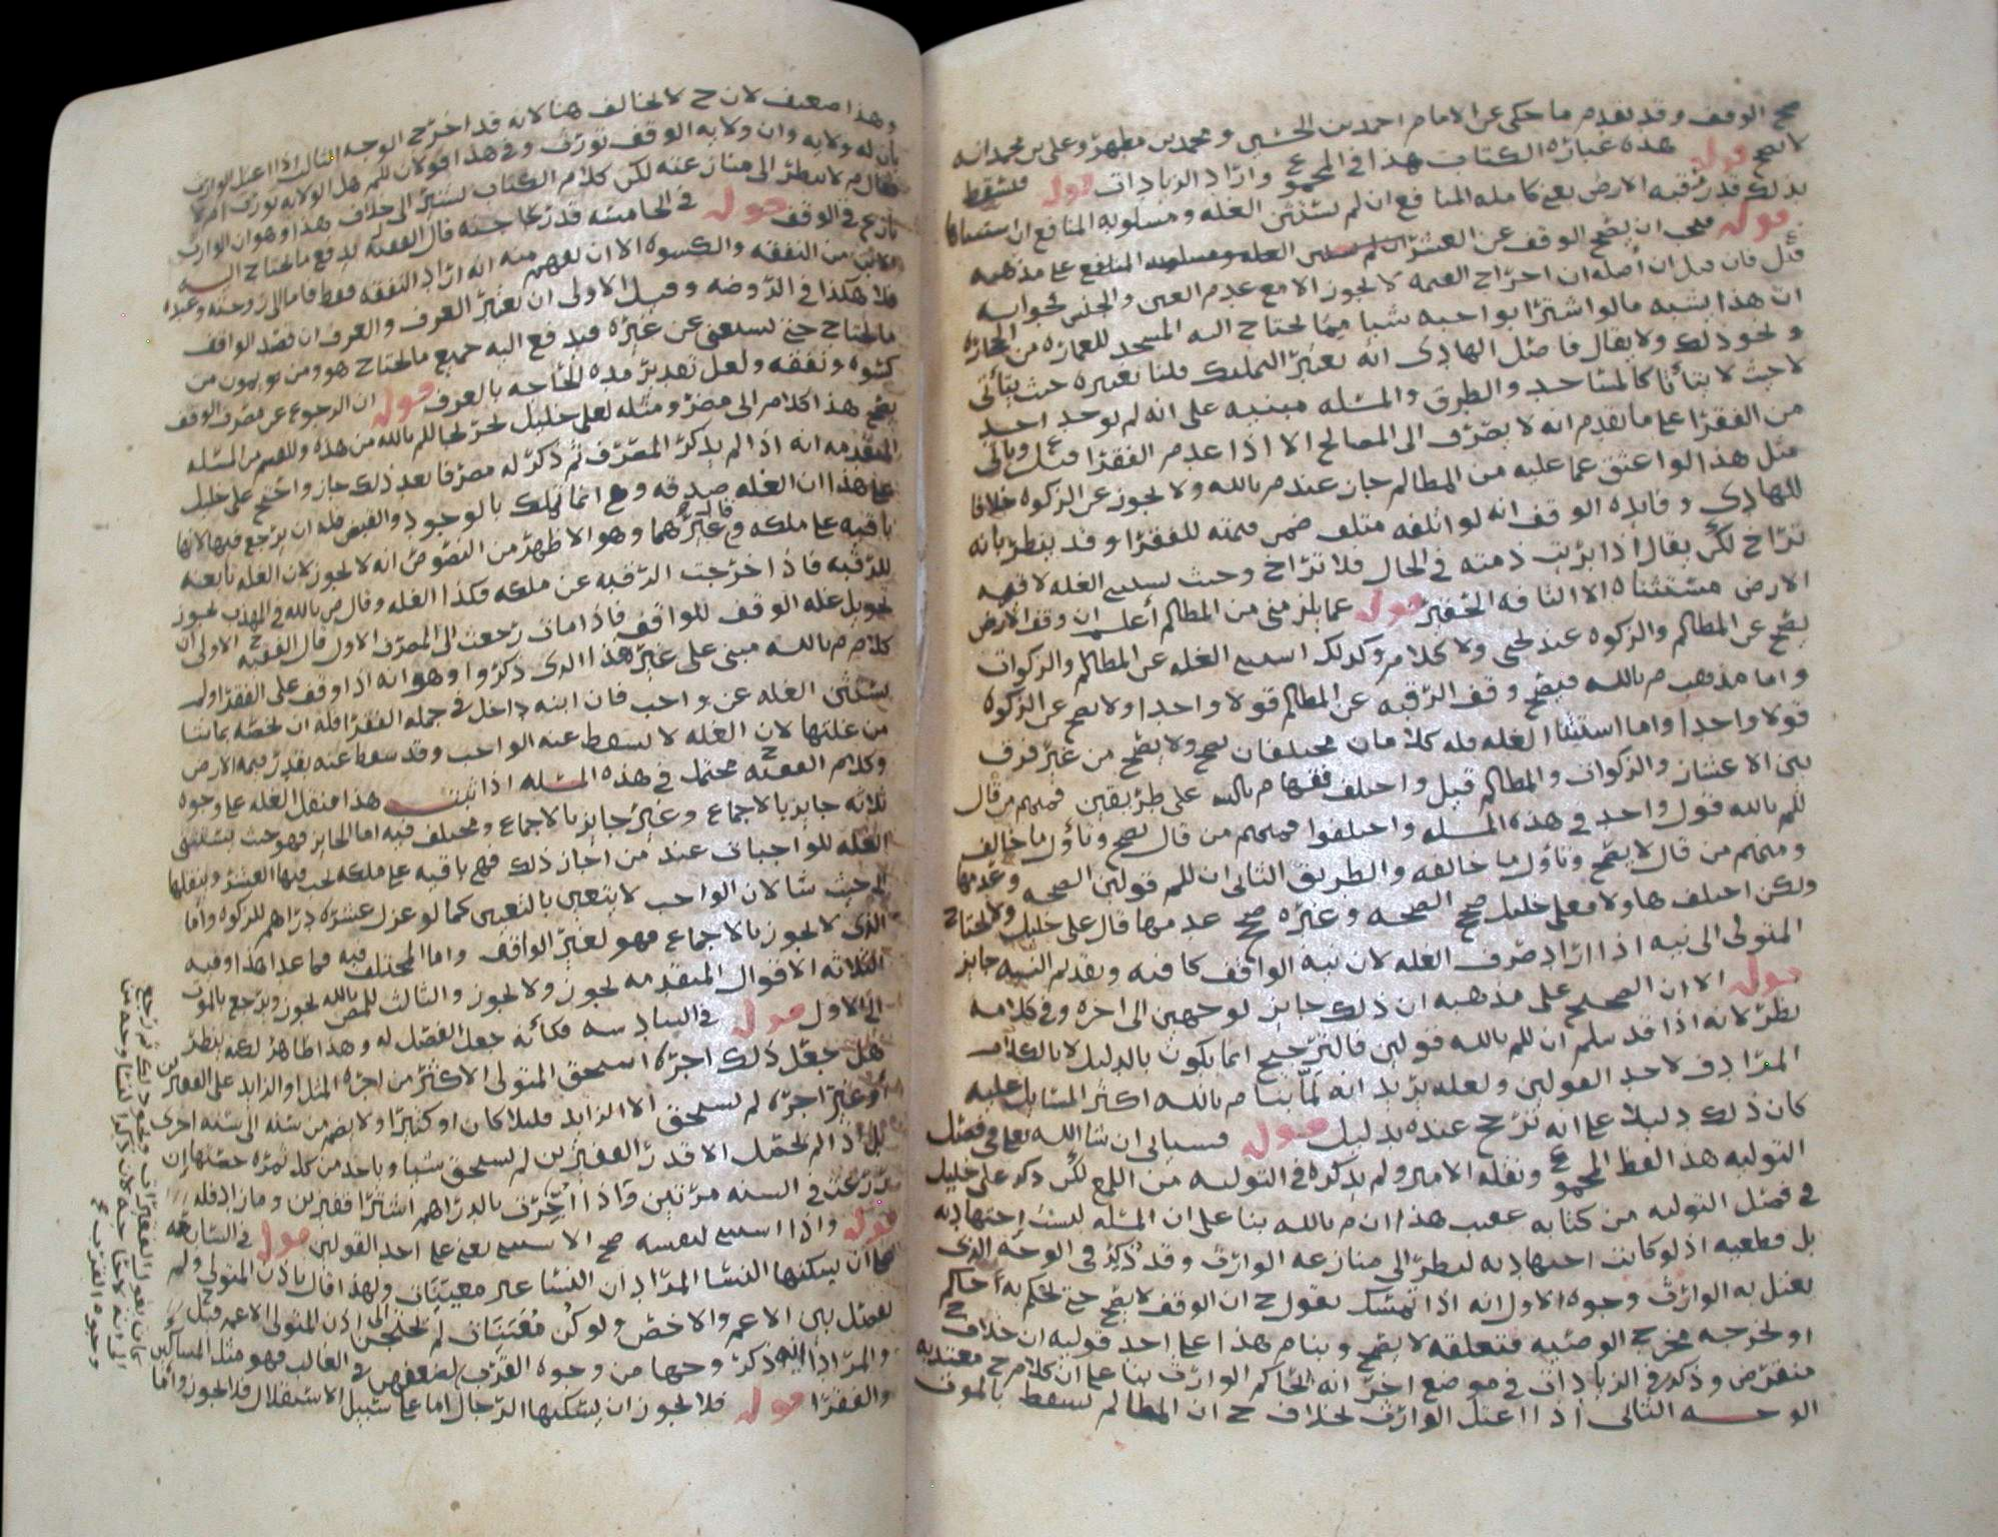 صح الوقف وقد تقدم ما حكى عن الامام احمد بن الحسين ومحمد بن مطهر وعلى بن محمد انه
لا يصح قوله هذه عبارة الكتاب هذا في المجموع واراد الزيادات قوله فيسقط
بذلك قدر رقبه الارض يعني كامله المنافع ان لم يستثن الغله ومسلوبه المنافع ان استثناها
قوله فيجب ان يصح الوقف عن العشر على مذهبه
قيل فان قيل ان اصله ان اخراج القيمه لا يجوز الا مع عدم العين والجنس فجوابه
ان هذا يشبه ما لو اشترا بواجبه شيا مما يحتاج اليه المسجد للعمارة من الحجاره
ونحو ذلك ولا يقال فاصل الهادى انه يعتبر التمليك قلنا يعتبره حيث يتأتى
لا حيث لا يتأتا كالمساجد والطرق والمسله مبنيه على انه لم يوجد احد
من الفقرا على ما تقدم انه لا يصرف الى المصالح الا اذا عدم الفقرا
مثل هذا لو اعتق عما عليه من المظالم جاز عند م بالله ولا يجوز عن الزكوه خلافا
للهادى وفايدة الوقف انه لو اتلفه متلف ضمن قيمته للفقرا وقد ينظر بانه
تراخ لكن يقال اذا برئت ذمته في الحال فلا تراخ وحيث يستثنى الغله لا قيمه
الارض مستثناه الا التافه الحقير قوله عما يلزمني من المظالم أعلم ان وقف الارض
يصح عن المظالم والزكوه عند يحيى ولا كلام وكذلك استثنى الغله عن المظالم والزكوات
واما مذهب م بالله فيصح وقف الرقبه عن المظالم قولا واحدا ولا يصح عن الزكوه
قولا واحدا واما استثنا الغله فله كلامان مختلفان يصح ولا يصح من غير فرق
بين الاعشار والزكوات والمظالم قيل واختلف فقها م بالله على طريقين فمنهم من قال
للم بالله قول واحد في هذه المسله واختلفوا فمنهم من قال يصح وتأول ما خالف
ومنهم من قال لا يصح وتأول ما خالفه والطريق الثاني ان للم قولين الصحه وعدمها
ولكن اختلف هاولا فعلى خليل صحح الصحه وغيره صحح عدمها قال على خليل ولا يحتاج
المتولى الى نيه اذا اراد صرف الغله لان نية الواقف كافيه وتقديم النيه جايز
قوله الا ان الصحيح على مذهبه ان ذلك جايز لوجهين الى اخره وفي كلامه
نظر لانه اذا قد سلم ان للم بالله قولين فالترجيح انما يكون بالدليل لا بالكلام
المرادف لاحد القولين ولعله يريد انه لما بنا م بالله اكثر المسايل عليه
كان ذلك دليلا على انه ترجح عنده بدليل قوله فسياتى ان شا الله تعالى في فصل
التوليه هذا لفظ المجموع ونقله الامير ولم يذكره في التوليه من اللمع لكن ذكره على خليل
في فصل التوليه من كتابه عقيب هذا ان م بالله بنا على ان المسله ليست اجتهاديه
بل قطعيه اذ لو كانت اجتهاديه لنظر الى منازعة الوارث وقد ذكر في الوجه الذى
يعتل به الوارث وجوه الاول انه اذا تمسك بقول ح ان الوقف لا يصح حتى يحكم به حاكم
او يخرجه مخرج الوصيه فتعلقه لا يصح وبنا م هذا على احد قوليه ان خلاف ح
منقرض وذكر في الزيادات في موضع اخر انه يحاكم الوارث بنا على ان كلام ح معتد به
الوجه الثانى اذا اعتل الوارث بخلاف ح ان المظالم تسقط بالموت
وهذا ضعيف لان ح لا يخالف هنا لانه قد اخرج الوجه الثالث اذا اعتل الوارث
بان له ولايه وان ولايه الوقف تورث وفي هذا قولان للم هل الولايه تورث ام لا
فقال م لا ينظر الى منازعته لكن كلام الكتاب يشير الى خلاف هذا وهو ان الوارث
نازع في الوقف قوله في الخامسه قدر حاجته قال الفقيه يدفع ما يحتاج اليه
الابن من النفقه والكسوه الا ان يفهم منه انه اراد النفقه فقط فاما الى زوجته وعبده
فلا هكذا في الروضه وقيل الاولى ان يعتبر العرف والعرف ان قصد الواقف
ما يحتاج حتى يستغني عن غيره فيدفع اليه جميع ما يحتاج هو ومن يمون من
كسوه ونفقه ولعل تقدير مدة الحاجه بالعرف قوله ان الرجوع عن مصرف الوقف
يصح هذا كلام ابى مضر ومثله لعلى خليل
المتقدمه انه اذا لم يذكر المصرف ثم ذكر له مصرفا بعد ذلك جاز واحتج على خليل
على هذا ان الغله صدقه وهي انما تملك بالوجود والقبض فله ان يرجع فيها لانها
باقيه على ملكه قال وغيرهما وهو الاظهر من النصوص انه لا يجوز لان الغله تابعه
للرقبه فاذا خرجت الرقبه عن ملكه فكذا الغله وقال ص بالله في المهذب يجوز
تحويل غلة الوقف للواقف فاذا مات رجعت الى المصرف الاول قال الفقيه ح الاولى ان
كلام م بالله مبنى على غير هذا الذى ذكروا وهو انه اذا وقف على الفقرا ولم
يستثن الغله عن واجب فان ابنه داخل في جملة الفقرا فله ان يخصه بما شا
من غلتها لان الغله لا تسقط عنه الواجب وقد سقط عنه بقدر قيمة الارض
وكلام الفقيه ح محتمل في هذه المسله اذا ثبت هذا فنقل الغله على وجوه
ثلاثه جايز بالاجماع وغير جايز بالاجماع ومختلف فيه اما الجايز فهو حيث يستثنى
الغله للواجبات عند من اجاز ذلك فهي باقيه على ملكه يجب فيها العشر وينقلها
الى حيث شا لان الواجب لا يتعين بالتعيين كما لو عزل عشره دراهم للزكوه واما
الذى لا يجوز بالاجماع فهو لغير الواقف واما المختلف فيه فما عدا هذا وفيه
الثلاثه الاقوال المتقدمه يجوز ولا يجوز والثالث للم ص بالله يجوز ويرجع بالموت
الى الاول قوله في السادسه فكأنه جعل الفضل له وهذا ظاهر لكنه ينظر
هل جعل ذلك اجره استحق المتولى الاكثر من اجرة المثل او الزايد على القفيزين
او غير اجره لم يستحق الا الزايد قليلا كان او كثيرا ولا يضم من سنه الى سنه اخرى
بل اذا لم يحصل الا قدر القفيزين لم يستحق شيا وياخذ من كل ثمره حصتها ان
زرعت في السنه مرتين واذا اُجّرت بالدراهم اشترا قفيزين وما زاد فله
قوله واذا استثنى لنفسه صح الاستثنى يعني على احد القولين قوله في السابعه
فله ان يسكنها النسا المراد ان النسا غير معينات ولهذا قال باذن المتولى ولم
يفصل بين الاعم والاخص ولو كن مُعَيّنات لم يحتجن الى اذن المتولى الاعم قيل ح
والمراد انه ذكر وجها من وجوه القرب لضعفهن في الغالب فهو مثل المساكين
والفقرا قوله فلا يجوز ان يسكنها الرجال اما على سبيل الاستقلال فلا يجوز واما
وجوه القرب